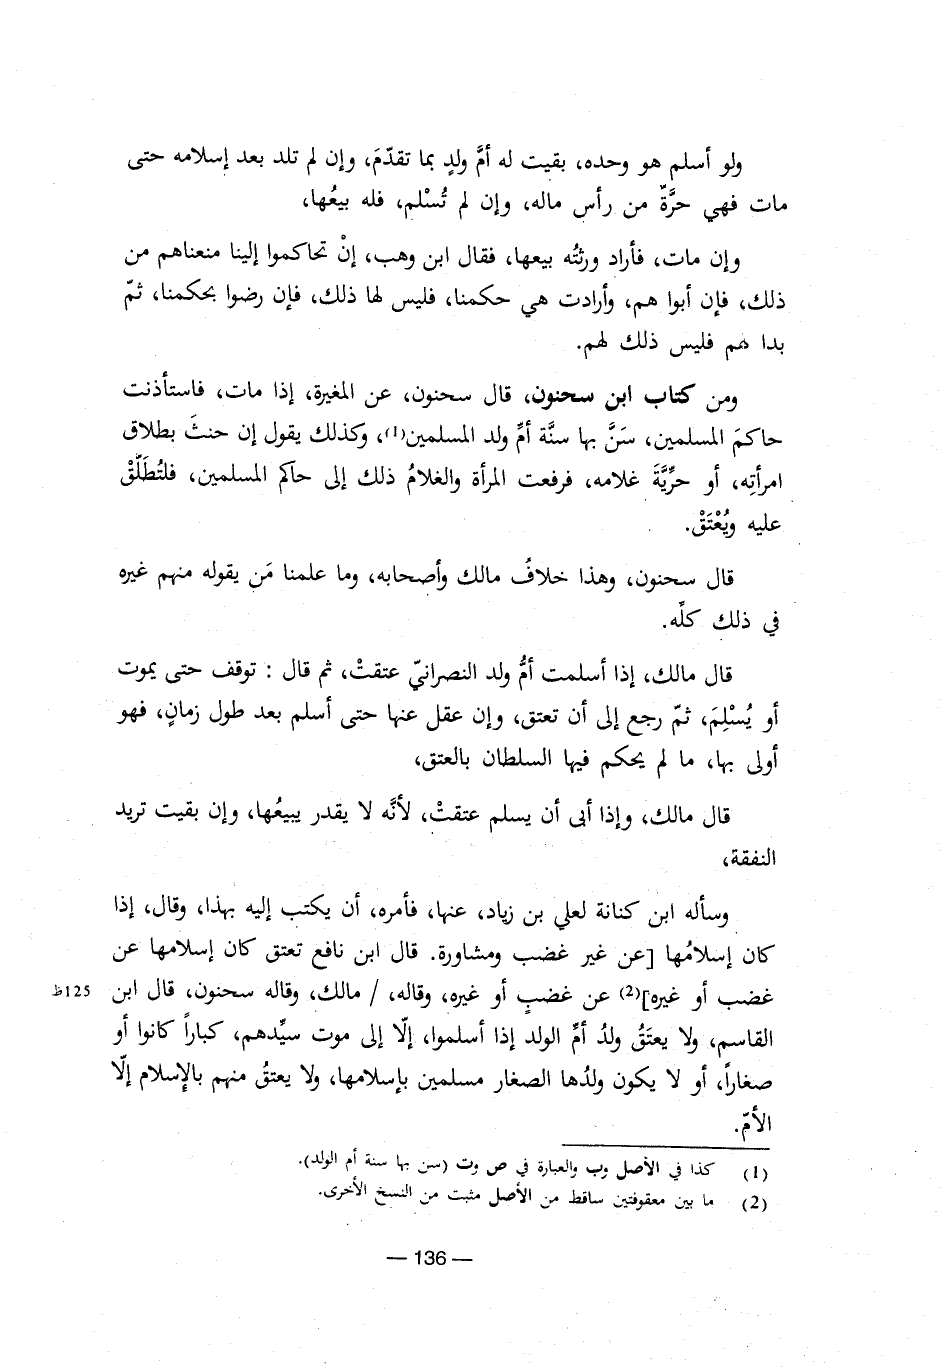 ولو أسلم هو وحده، بقيت له أمَّ ولدٍ بما تقدّمَ، وإن لم تلد بعد إسلامه حتى
مات فهي حرَّةٌ من رأس ماله، وإن لم تُسْلم، فله بيعُها،
وإن مات، فأراد ورثتُه بيعها، فقال ابن وهب، إنْ تحاكموا إلينا منعناهم من
ذلك، فإن أبوا هم، وأرادت هي حكمنا، فليس لها ذلك، فإن رضوا بحكمنا، ثمّ
بدا لهم فليس ذلك لهم.
ومن كتاب ابن سحنون، قال سحنون، عن المغيرة، إذا مات، فاستأذنت
حاكمَ المسلمين، سَنَّ بها سنَّة أمِّ ولد المسلمين(1)، وكذلك يقول إن حنثَ بطلاق
امرأتِه، أو حرِّيَّةَ غلامه، فرفعت المرأة والغلامُ ذلك إلى حاكم المسلمين، فلتُطَلَّقْ
عليه ويُعْتَقْ.
قال سحنون، وهذا خلافُ مالك وأصحابه، وما علمنا مَن يقوله منهم غيره
في ذلك كلِّه.
قال مالك، إذا أسلمت أمُّ ولد النصرانيّ عتقتْ، ثم قال : توقف حتى يموت
أو يُسْلِمَ، ثمّ رجع إلى أن تعتق، وإن عقل عنها حتى أسلم بعد طول زمانٍ، فهو
أولى بها، ما لم يحكم فيها السلطان بالعتق،
قال مالك، وإذا أبى أن يسلم عتقتْ، لأنَّه لا يقدر يبيعُها، وإن بقيت تريد
النفقة،
وسأله ابن كنانة لعلي بن زياد، عنها، فأمره، أن يكتب إليه بهذا، وقال، إذا
كان إسلامُها [عن غير غضب ومشاورة. قال ابن نافع تعتق كان إسلامها عن
غضب أو غيره](2) عن غضبٍ أو غيره، وقاله، / مالك، وقاله سحنون، قال ابن 125ظ
القاسم، ولا يعتَقُ ولدُ أمِّ الولد إذا أسلموا، إلّا إلى موت سيِّدهم، كباراً كانوا أو
صغاراً، أو لا يكون ولدُها الصغار مسلمين بإسلامها، ولا يعتقُ منهم بالإسلام إلّا
الأمّ.
(1) كذا في الأصل وب والعبارة في ص وت (سن بها سنة أم الولد).
(2) ما بين معقوفتين ساقط من الأصل مثبت من النسخ الأخرى.
— 136 —